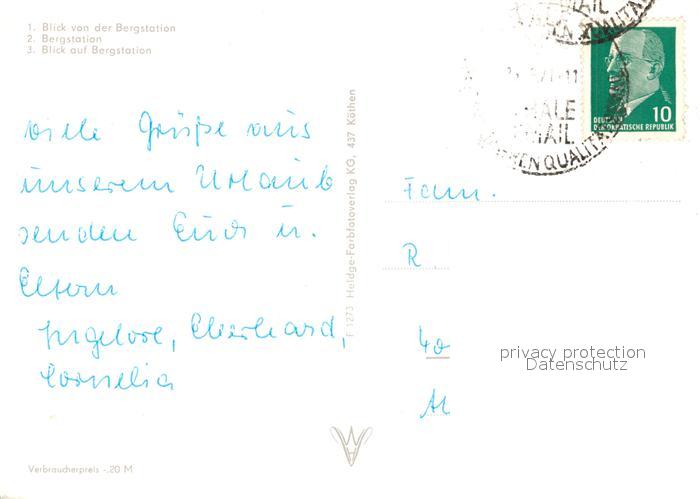 1. Blick von der Bergstation
2. Bergstation
3. Blick auf Bergstation
viele Grüße aus
unserem Urlaub
senden Euch u.
Eltern
Ingelore, Eberhard,
Cornelia
Verbraucherpreis -.20 M
F 1273 Heldge-Farbfotoverlag KG, 437 Köthen
10
DEUTSCHE
DEMOKRATISCHE REPUBLIK
MAIL
QUALITÄ
71-11
MAIL
MARKEN QUALITÄ
Fam.
R.
40
privacy protection
Datenschutz